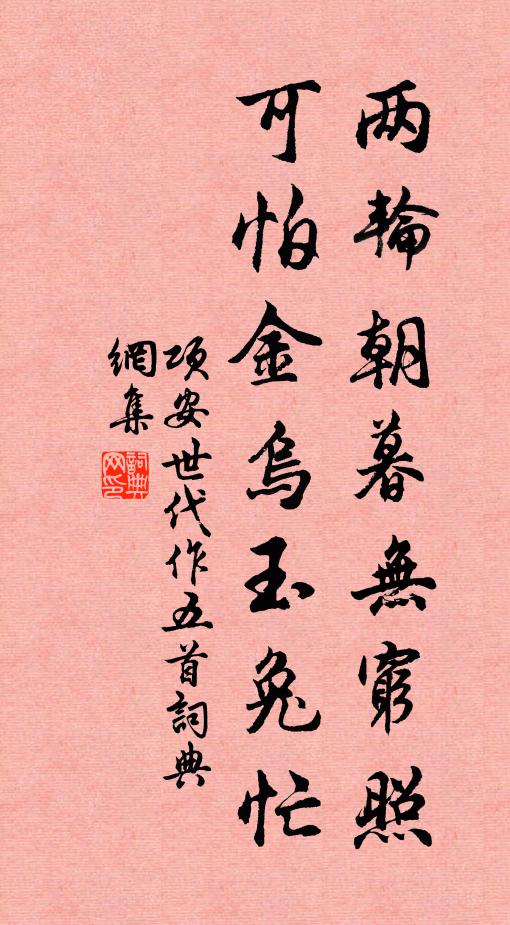 两輪朝暮無窮照
可怕金烏玉兔忙
項安世代作五首詞典
網集
詞典
网印